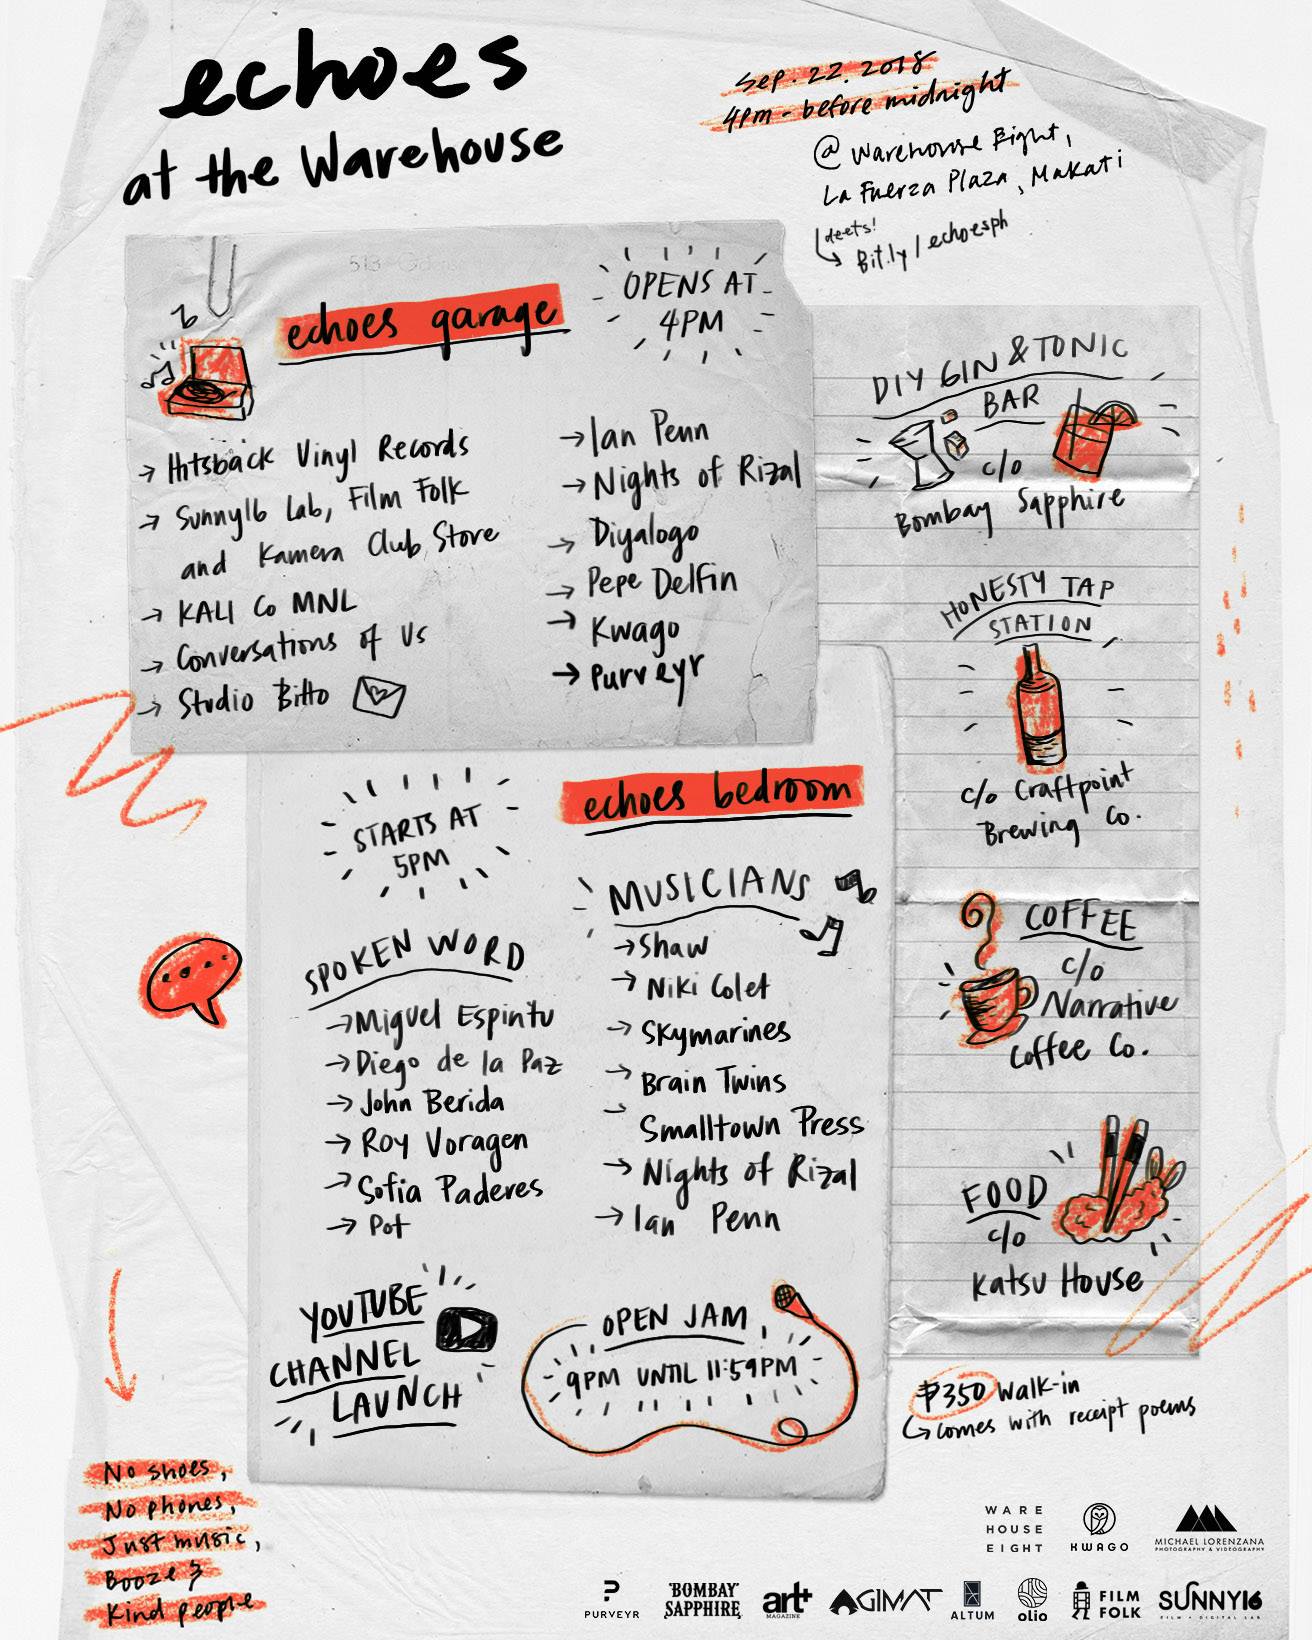 echoes
at the Warehouse
Sep. 22. 2018
4pm - before midnight
@ Warehouse Eight,
La Fuerza Plaza, Makati
deets!
Bit.ly/echoesph
echoes garage
OPENS AT
4PM
→ Hitsback Vinyl Records
→ Sunny16 Lab, Film Folk
and Kamera Club Store
→ KALI Co MNL
→ Conversations of Us
→ Studio Bitto
→ Ian Penn
→ Nights of Rizal
→ Diyalogo
→ Pepe Delfin
→ Kwago
→ Purveyr
DIY GIN & TONIC
BAR
c/o
Bombay Sapphire
HONESTY TAP
STATION
c/o Craftpoint
Brewing Co.
COFFEE
c/o
Narrative
Coffee Co.
FOOD
c/o
Katsu House
STARTS AT
5PM
echoes bedroom
SPOKEN WORD
→ Miguel Espiritu
→ Diego de la Paz
→ John Berida
→ Roy Voragen
→ Sofia Paderes
→ Pot
MUSICIANS
→ Shaw
→ Niki Colet
→ Skymarines
→ Brain Twins
Smalltown Press
→ Nights of Rizal
→ Ian Penn
YOUTUBE
CHANNEL
LAUNCH
OPEN JAM
9PM UNTIL 11:59PM
₱350 Walk-in
comes with receipt poems
No shoes,
No phones,
Just music,
Booze &
Kind people
WARE
HOUSE
EIGHT
KWAGO
MICHAEL LORENZANA
PHOTOGRAPHY & VIDEOGRAPHY
PURVEYR
BOMBAY
SAPPHIRE
art+
MAGAZINE
AGIMAT
ALTUM
olio
FILM
FOLK
SUNNY16
FILM + DIGITAL LAB